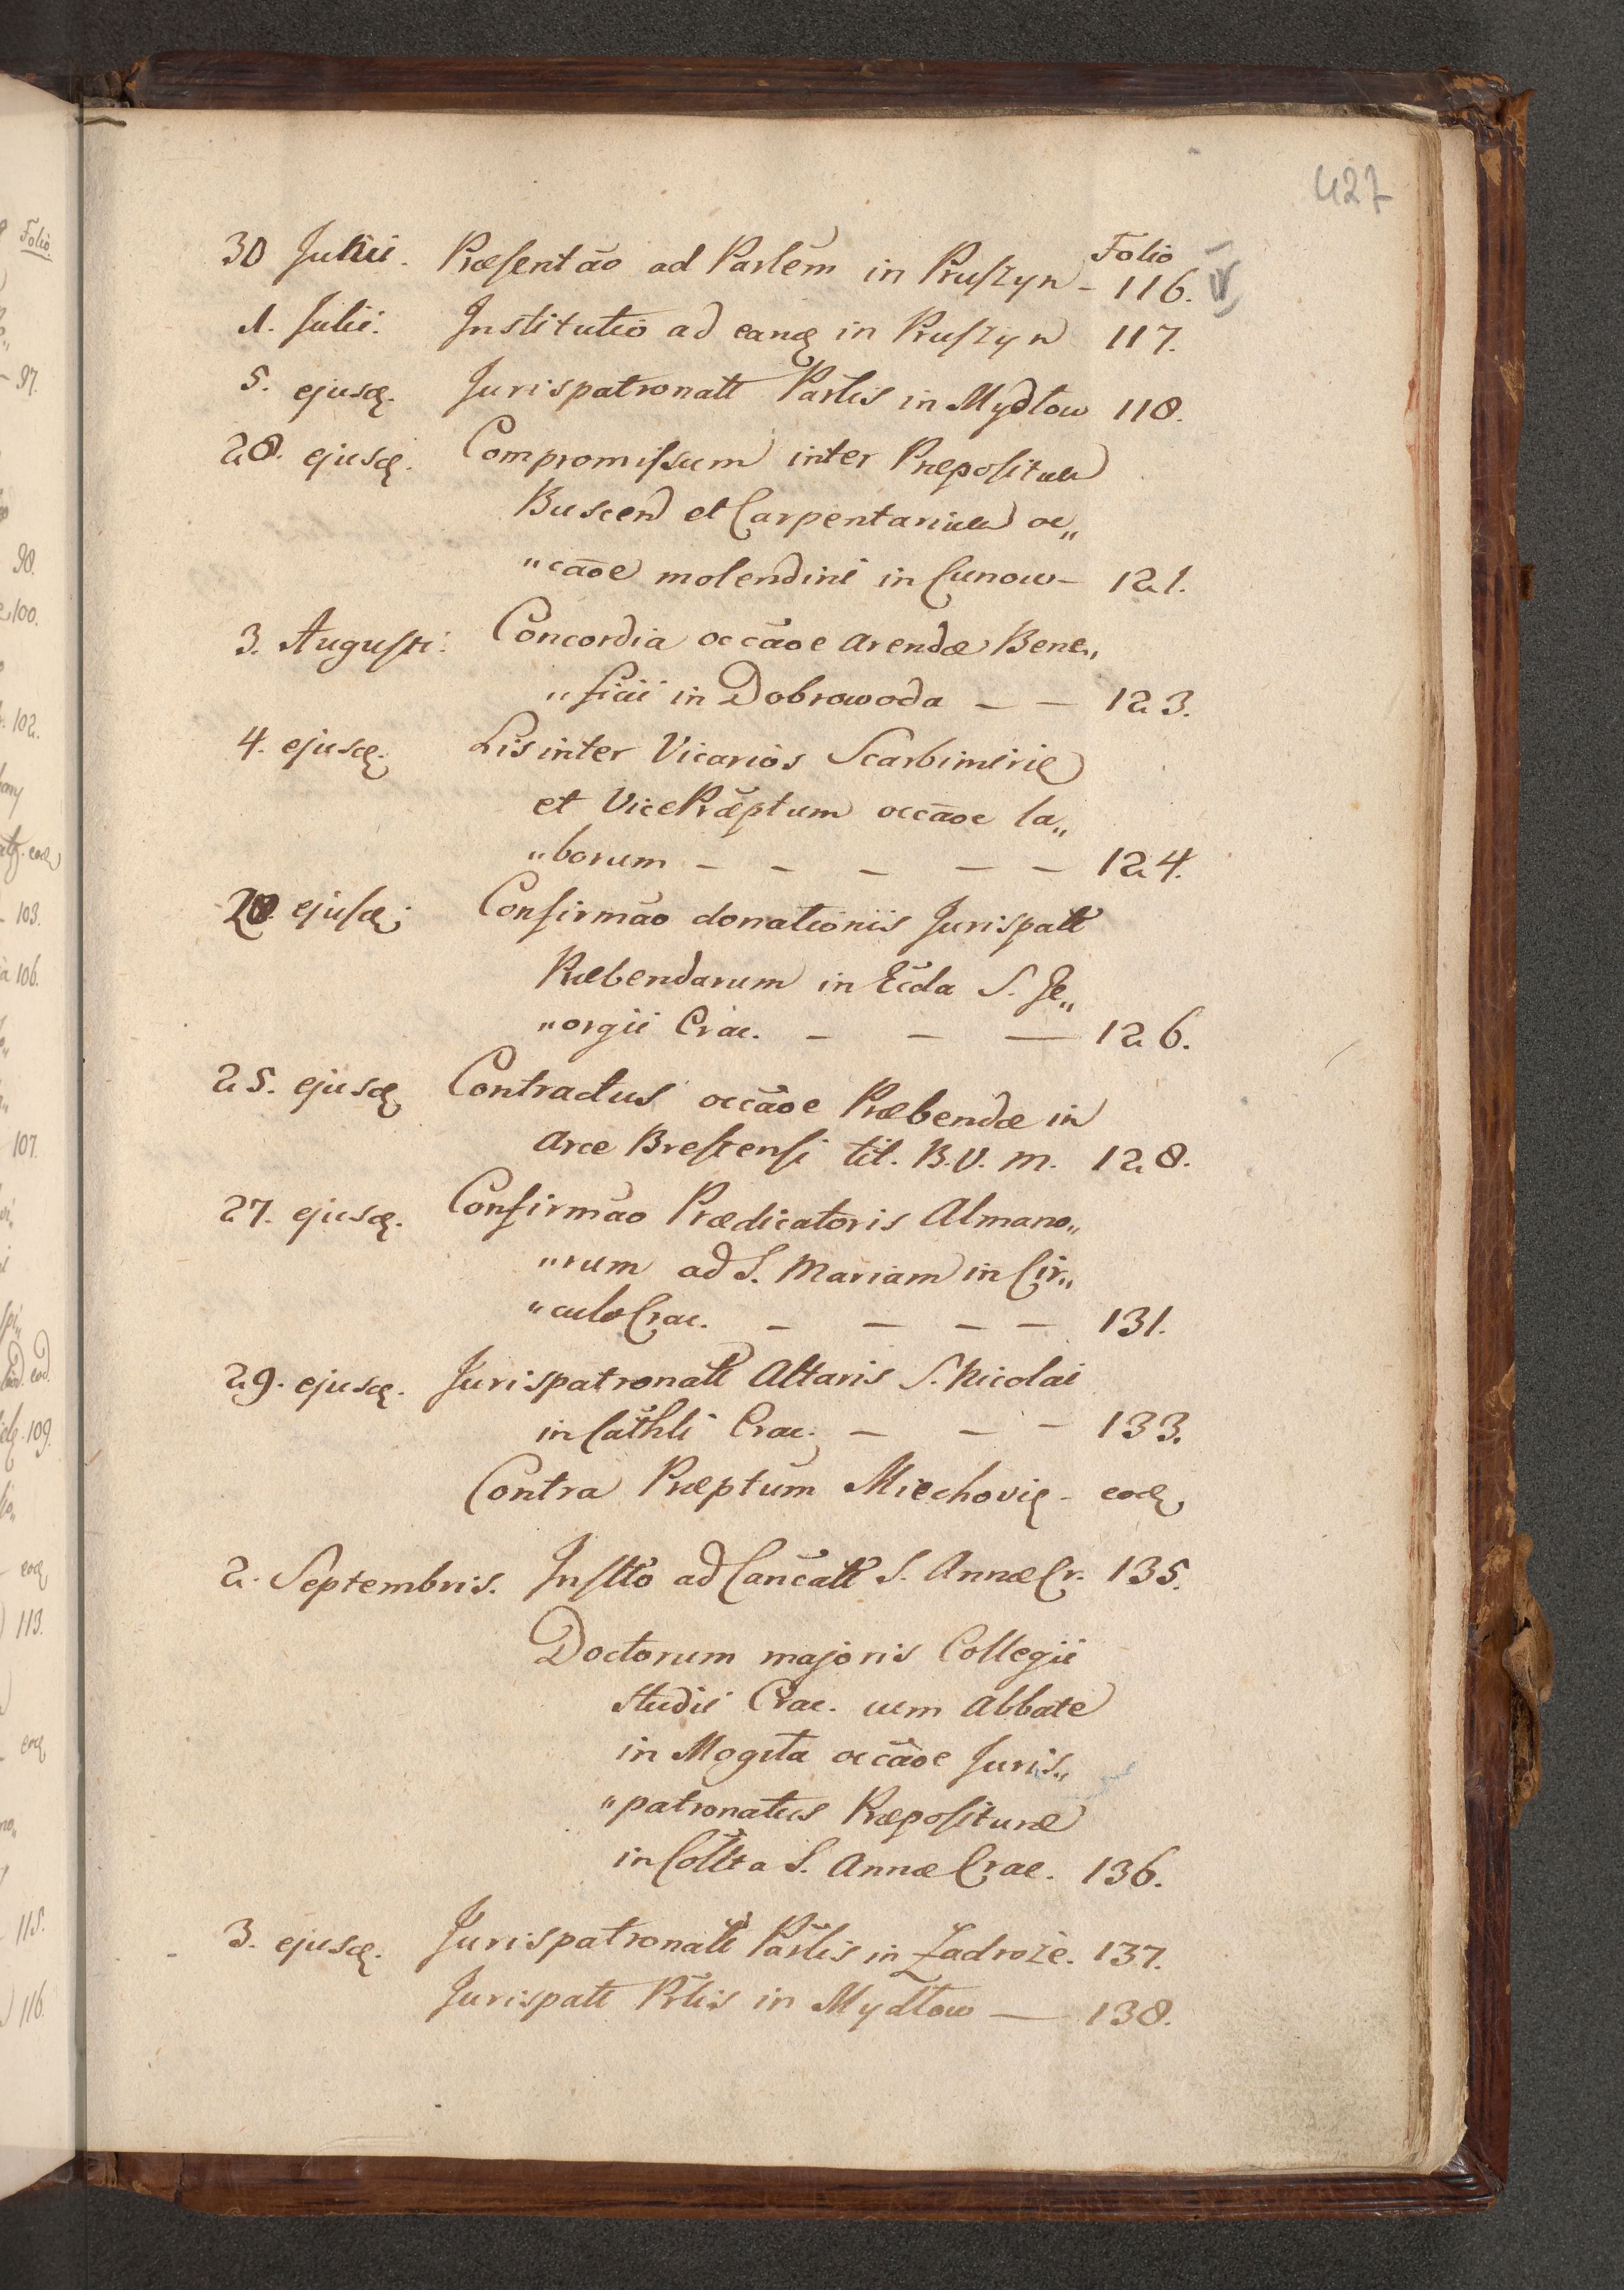 427
Folio
30 Junii. Præsentāo ad Parlem in Pruszyn - 116.
1. Julii. Institutio ad eandę in Pruszyn 117.
5. ejusdę. Jurispatronatt Parlis in Mydłow 118.
28. ejusdę. Compromissum inter Præpositum
Buscen et Carpentarium oc„
„cāoe molendini in Cunow - 121.
3. Augusti. Concordia occāoe arendæ Bene„
„ficii in Dobrowoda - - 123.
4. ejusdę. Lis inter Vicarios Scarbimirię
et VicePræptum occāoe la„
„borum - - - - - 124.
20. ejusdę. Confirmāo donationis Jurispatt
Præbendarum in Eccla S. Je„
„orgii Crac. - - - 126.
25. ejusdę Contractus occāoe Præbendæ in
Arce Brestensi tit. B. V. M. 128.
27. ejusdę. Confirmāo Prædicatoris Almano„
„rum ad S. Mariam in Cir„
„culo Crac. - - - - 131.
29. ejusdę. Jurispatronatt Altaris S. Nicolai
in Cathli Crac. - - - 133.
Contra Præptum Miechovię - eodę
2. Septembris. Instto ad Cancatt S. Annæ Cr. 135.
Doctorum majoris Collegii
studii Crac. cum Abbate
in Mogiła occāoe Juris„
„patronatus Præposituræ
in Collta S. Annæ Crac. 136.
3. ejusdę. Jurispatronatt Parlis in Zadroże. 137.
Jurispatt Prlis in Mydłow - 138.